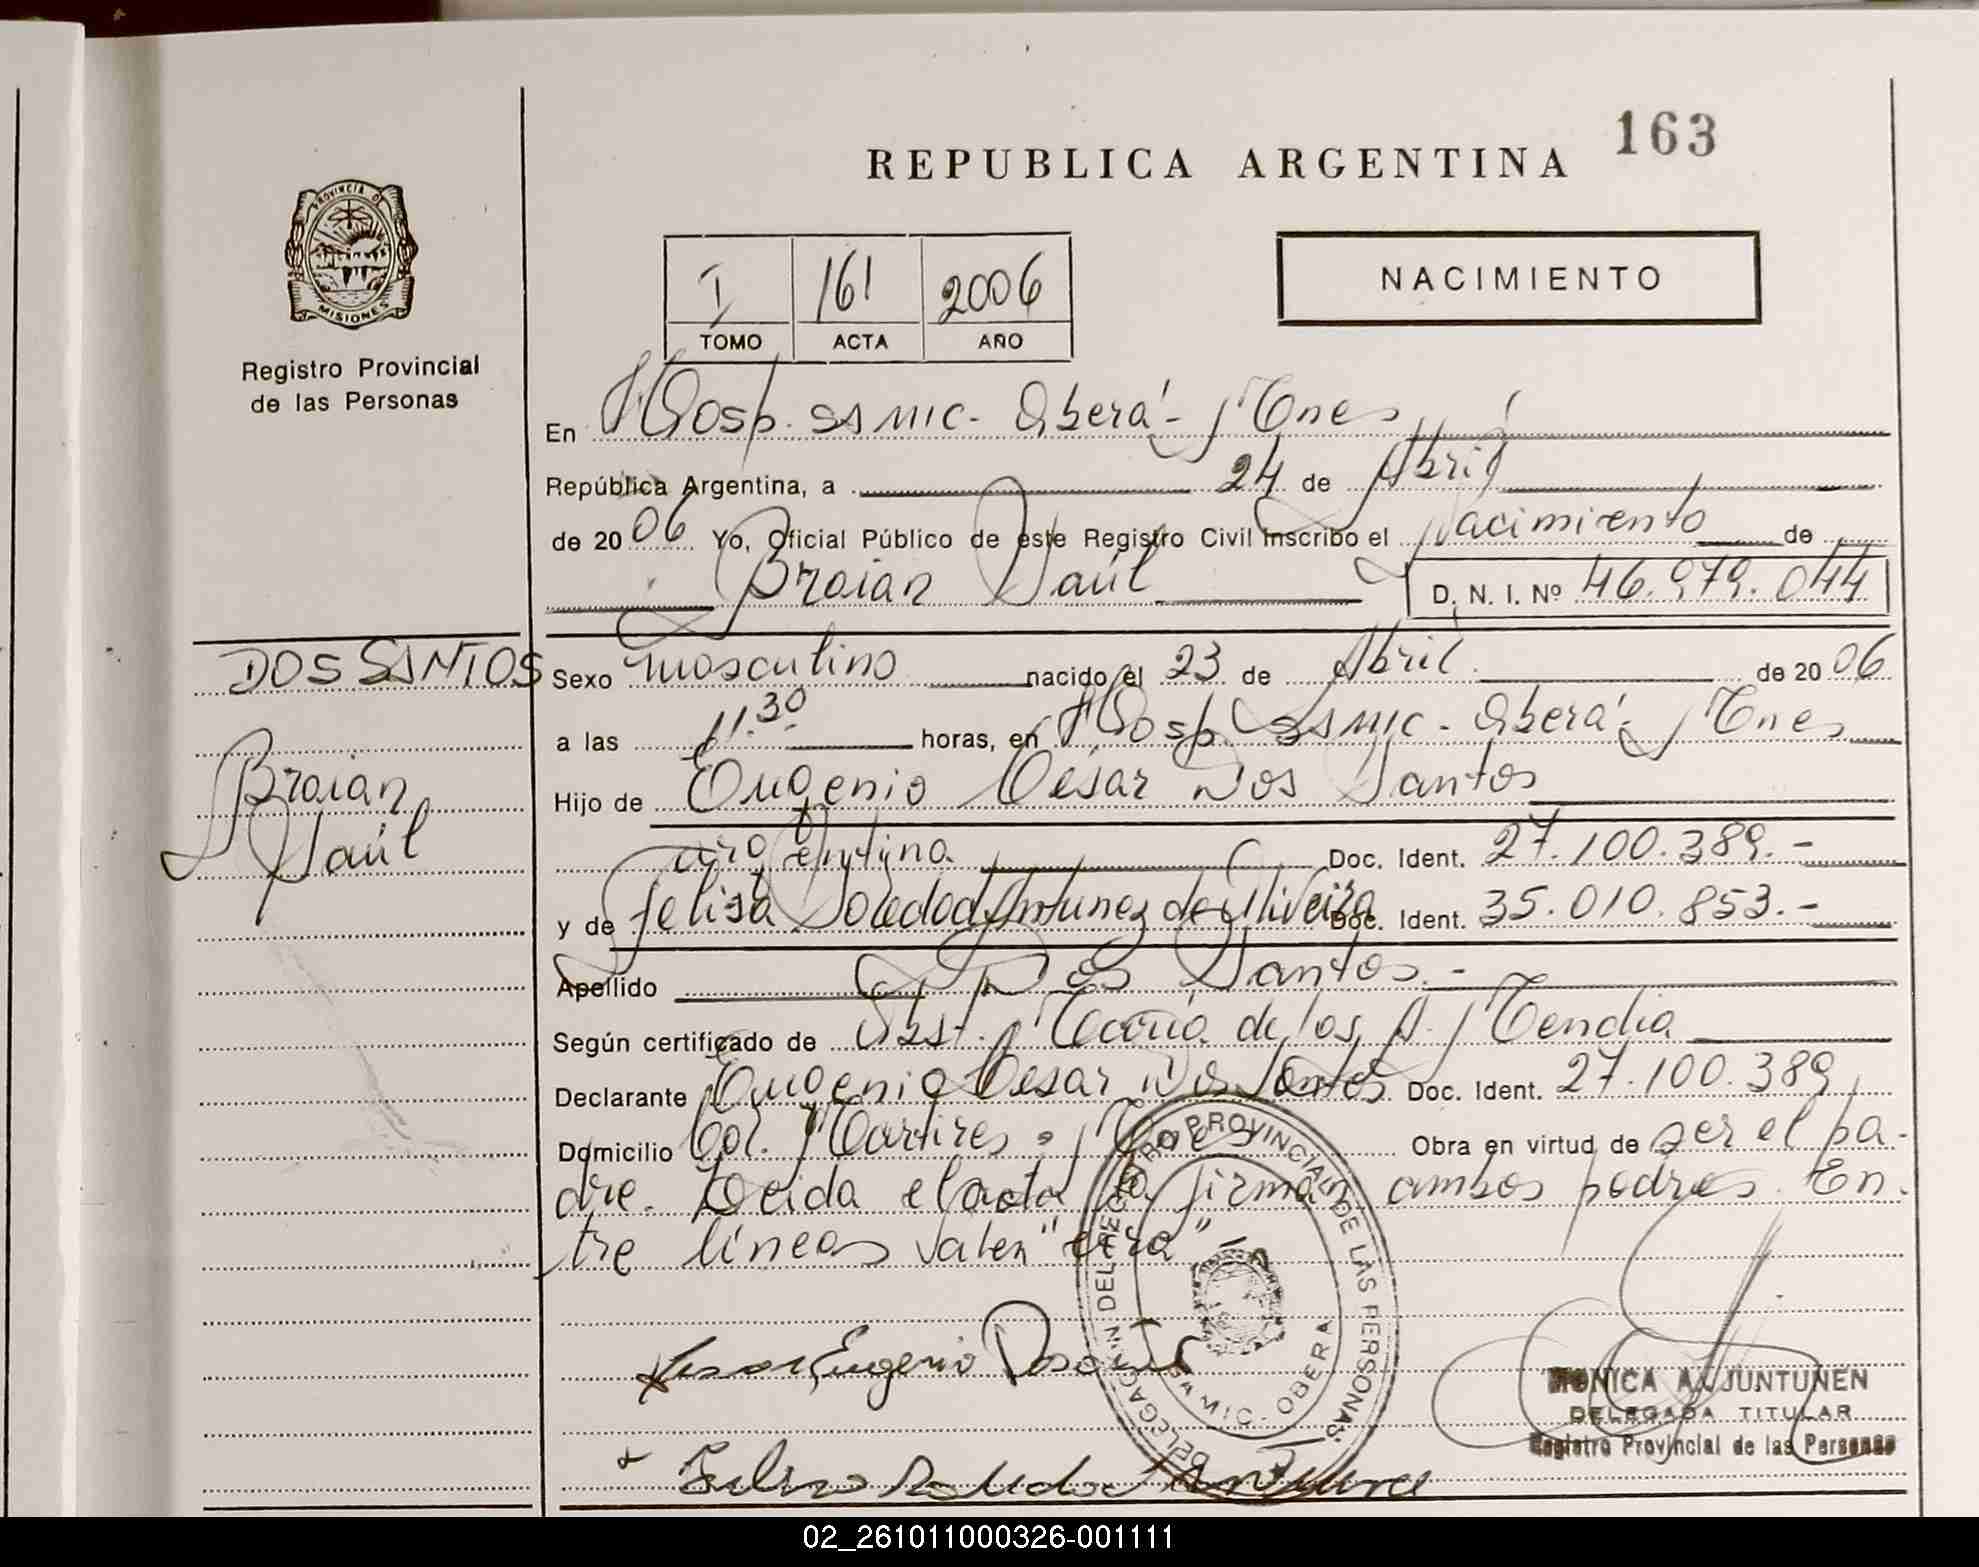 163
REPUBLICA ARGENTINA
PROVINCIA D
MISIONES
Registro Provincial
de las Personas
NACIMIENTO
I 161 2006
TOMO ACTA AÑO
En Hosp. SAMIC - Oberá - Mnes
República Argentina, a 24 de Abril
de 2006 Yo, Oficial Público de este Registro Civil Inscribo el Nacimiento de
Braian Saúl D. N. I. Nº 46.979.044
DOS SANTOS
Braian
Saúl
Sexo masculino nacido el 23 de Abril de 2006
a las 11.30 horas, en Hosp. SAMIC - Oberá - Mnes
Hijo de Eugenio César Dos Santos
argentino Doc. Ident. 27.100.389.-
y de Felisa Soledad Antunez de Oliveira Doc. Ident. 35.010.853.-
Apellido Dos Santos.-
Según certificado de Obst. María de los A. Mendia
Declarante Eugenio Cesar Dos Santos Doc. Ident. 27.100.389
Domicilio Col. Martires - Mnes Obra en virtud de ser el pa-
dre. Leida el acta la firman ambos padres. En-
tre líneas valen "eira"
DELEGACION DEL REGISTRO PROVINCIAL DE LAS PERSONAS
SAMIC - OBERA
Eugenio
MONICA A. JUNTUNEN
DELEGADA TITULAR
Registro Provincial de las Personas
02_261011000326-001111